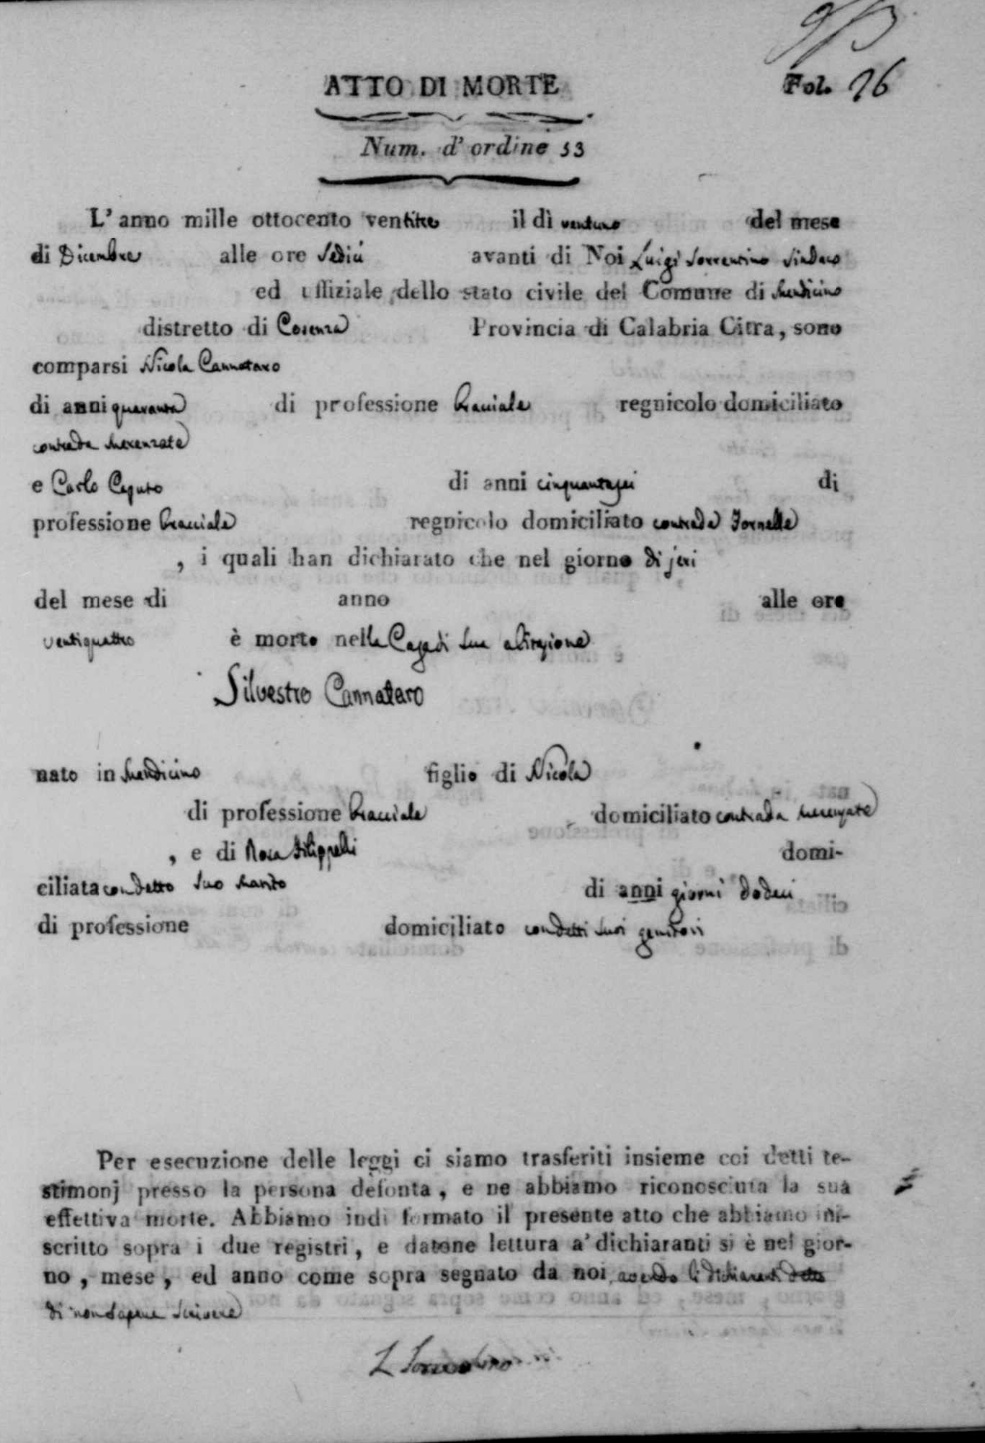 Fol. 26
ATTO DI MORTE
Num. d' ordine 53
L' anno mille ottocento ventitre il dì ventuno del mese
di Dicembre alle ore sedici avanti di Noi Luigi Sorrentino Sindaco
ed uffiziale dello stato civile del Comune di Mendicino
distretto di Cosenza Provincia di Calabria Citra, sono
comparsi Nicola Cannataro
di anni quaranta di professione Bracciale regnicolo domiciliato
contrada Merenzate
e Carlo Caputo di anni cinquantasei di
professione Bracciale regnicolo domiciliato contrada Fornelle
, i quali han dichiarato che nel giorno di jeri
del mese di anno alle ore
ventiquattro è morto nella Casa di Sua abitazione
Silvestro Cannataro
nato in Mendicino figlio di Nicola
di professione Bracciale domiciliato contrada Merenzate
, e di Rosa Filippelli domi-
ciliata condetto Suo Marito di anni giorni dodeci
di professione domiciliato condetti Suoi genitori
Per esecuzione delle leggi ci siamo trasferiti insieme coi detti te-
stimonj presso la persona defonta, e ne abbiamo riconosciuta la sua
effettiva morte. Abbiamo indi formato il presente atto che abbiamo in-
scritto sopra i due registri, e datone lettura a' dichiaranti si è nel gior-
no, mese, ed anno come sopra segnato da noi avendo li dichiaranti detto
di non sapere scrivere
L Sorrentino